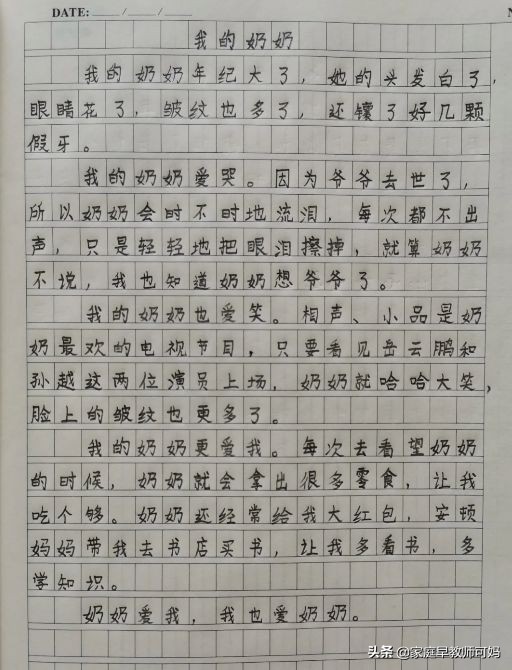 DATE: / /
我的奶奶
我的奶奶年纪大了，她的头发白了，
眼睛花了，皱纹也多了，还镶了好几颗
假牙。
我的奶奶爱哭。因为爷爷去世了，
所以奶奶会时不时地流泪，每次都不出
声，只是轻轻地把眼泪擦掉，就算奶奶
不说，我也知道奶奶想爷爷了。
我的奶奶也爱笑。相声、小品是奶
奶最欢的电视节目，只要看见岳云鹏和
孙越这两位演员上场，奶奶就哈哈大笑，
脸上的皱纹也更多了。
我的奶奶更爱我。每次去看望奶奶
的时候，奶奶就会拿出很多零食，让我
吃个够。奶奶还经常给我大红包，安顿
妈妈带我去书店买书，让我多看书，多
学知识。
奶奶爱我，我也爱奶奶。
头条 @家庭早教师可妈